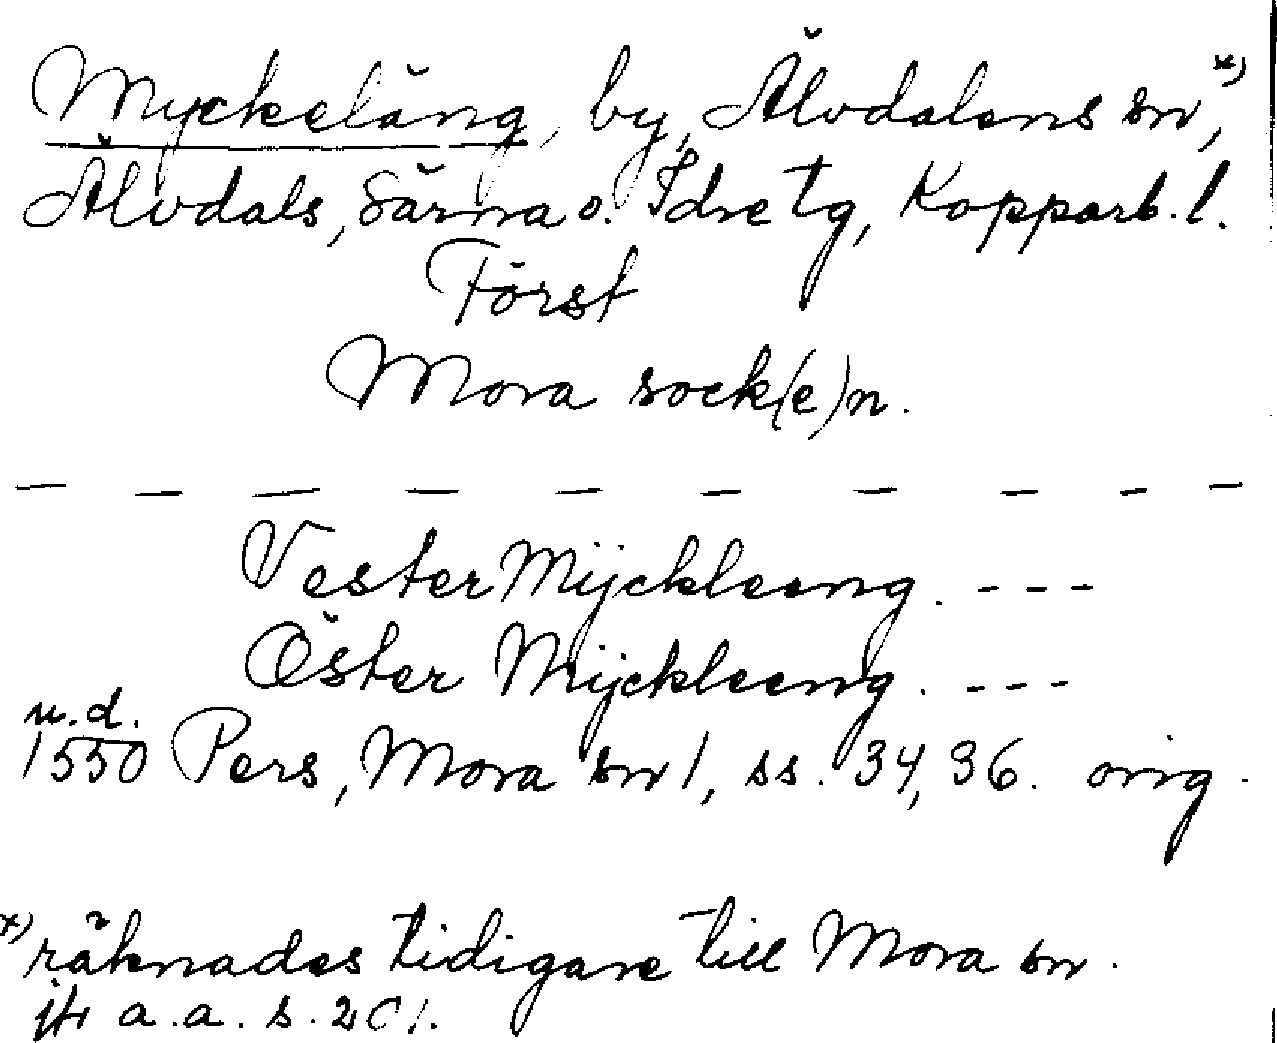 Myckeläng, by, Älvdalens sn, x)
Älvdals, Särna o. Idre tg, Kopparb. l.
Först
Mora sock(e)n.
— — — — — — — — — —
Vester Mÿckleeng. - - -
Öster Mÿckleeng. - - -
u.d.
1550 Pers, Mora sn 1, ss. 34, 36. orig.
x) räknades tidigare till Mora sn.
jfr a.a. s. 201.